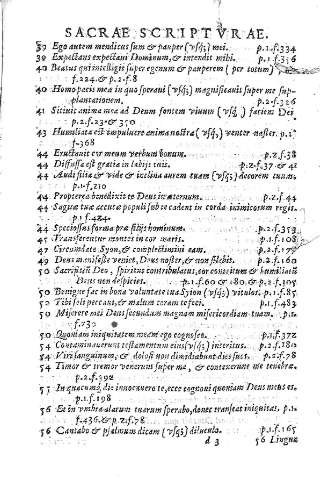 SACRAE SCRIPTVRAE.
39 Ego autem mendicus sum & pauper (vsq;) mei. p.1.f.334
39 Expectans expectaui Dominum, & intendit mihi. p.1.f.336
40 Beatus qui intelligit super egenum & pauperem (per totum)
f.224.& p.2.f.8
40 Homo pacis meæ in quo speraui (vsq;) magnificauit super me sup-
plantationem. p.2.f.326
41 Sitiuit anima mea ad Deum fontem viuum (vsq;) faciem Dei
p.2.f.23.& 350
43 Humiliata est in puluere anima nostra (vsq;) venter noster. p.2.
f.368
44 Eructauit cor meum verbum bonum. p.2.f.38
44 Diffusa est gratia in labijs tuis. p.2.f.37.& 42
44 Audi filia & vide & inclina aurem tuam (vsq;) decorem tuum.
p.1.f.210
44 Propterea benedixit te Deus in æternum. p.2.f.44
44 Sagittæ tuæ acutæ populi sub te cadent in corda inimicorum regis.
p.1.f.424
44 Speciosus forma præ filijs hominum. p.2.f.359
45 Transferentur montes in cor maris. p.1.f.108
47 Circundate Syon, & complectimini eam. p.2.f.177
49 Deus manifeste veniet, Deus noster, & non silebit. p.2.f.160
50 Sacrificium Deo, spiritus contribulatus, cor contritum & humiliatū
Deus non despicies. p.1.f.60.& 180.& p.2.f.305
50 Benigne fac in bona voluntate tua Syon (vsq;) vitulos. p.1.f.85
50 Tibi soli peccaui, & malum coram te feci. p.1.f.483
50 Miserere mei Deus secundum magnam misericordiam tuam. p.1.
f.730
50 Quoniam iniquitatem meam ego cognosco. p.1.f.372
54 Contaminauerunt testamentum eius (vsq;) interitus. p.2.f.280
54 Viri sanguinum, & dolosi non dimidiabunt dies suos. p.2.f.78
54 Timor & tremor venerunt super me, & contexerunt me tenebræ.
p.2.f.392
55 In quacumq; die inuocauero te, ecce cognoui quoniam Deus meus es.
p.1.f.198
56 Et in vmbra alarum tuarum sperabo, donec transeat iniquitas. p.1.
f.436.& p.2.f.78
56 Cantabo & psalmum dicam (vsq;) diluculo. p.1.f.165
d 3 56 Lingua